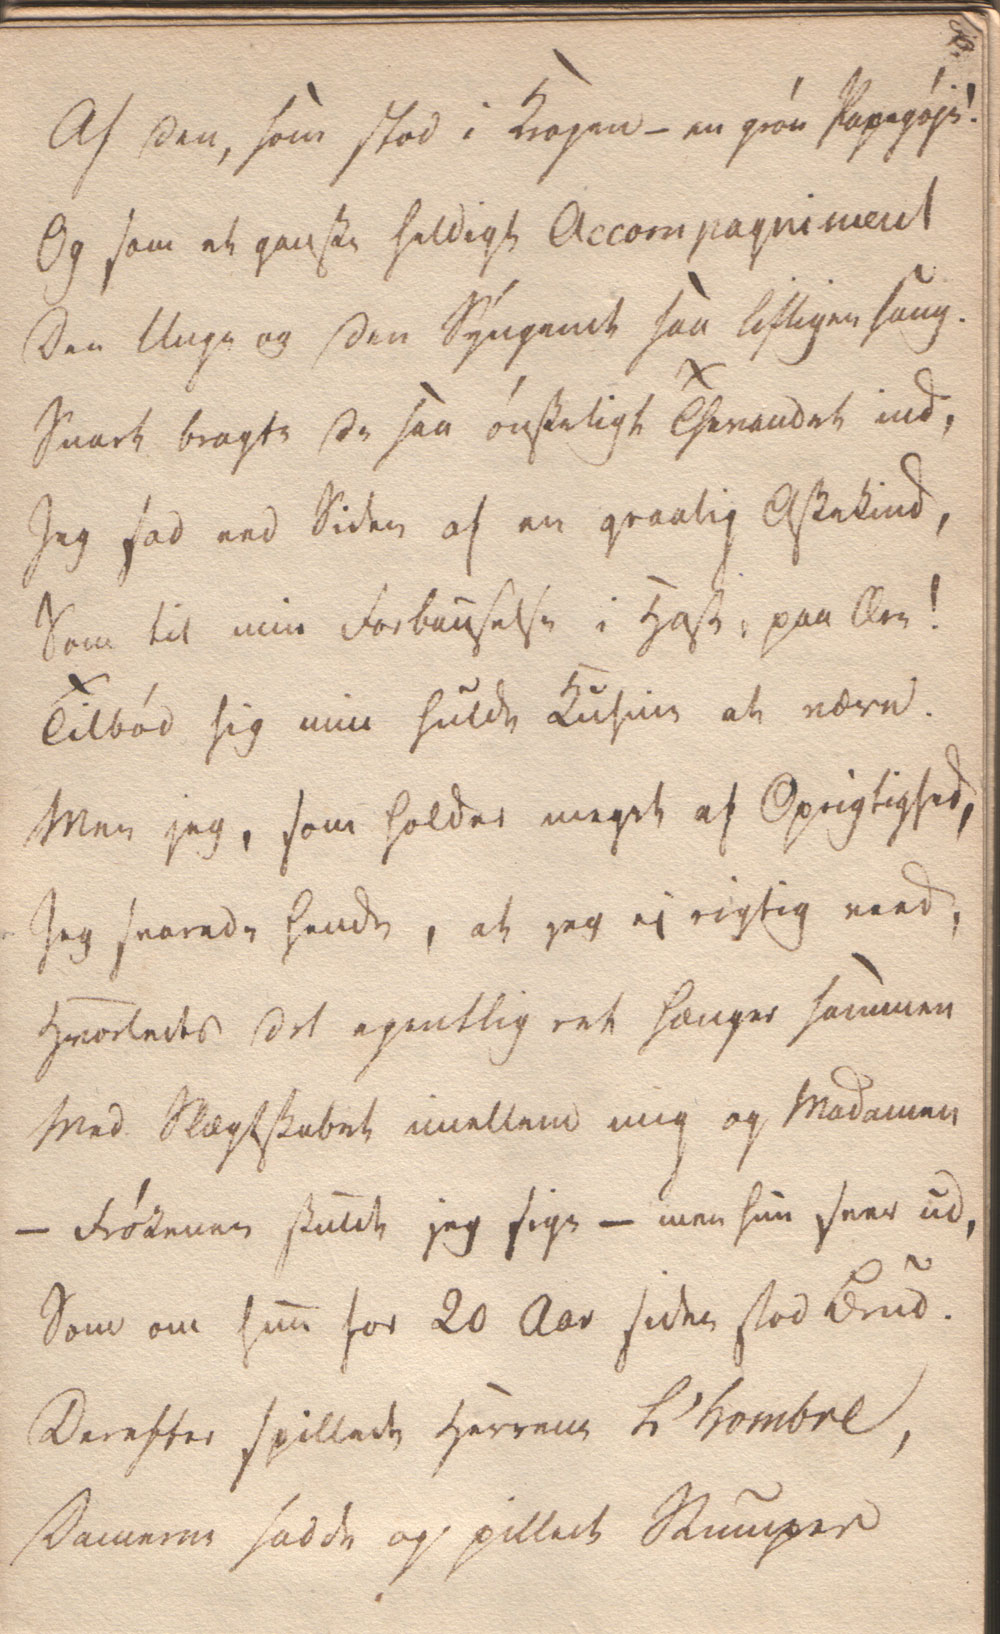 Af den, som stod i Krogen – en grön Papegöje!
Og som et ganske heldigt Accompagniment
Den Unge og den Syngende saa lifligen sang.
Snart bragte de saa önskeligt Thevandet ind,
Jeg sad ved Siden af en graalig Askekind,
Som til min Forbauselse i Hast, paa Ære!
Tilböd sig min hulde Kusine at være.
Men jeg, som holder meget af Oprigtighed,
Jeg svarede hende, at jeg ej rigtig veed,
Hvorledes det egentlig ret hænger sammen
Med Slægtskabet imellem mig og Madamen
– Frökenen skulde jeg sige – men hun seer ud,
Som om hun for 20 Aar siden stod Brud.
Derefter spillede Herrerne L'hombre,
Damerne sadde og pillede